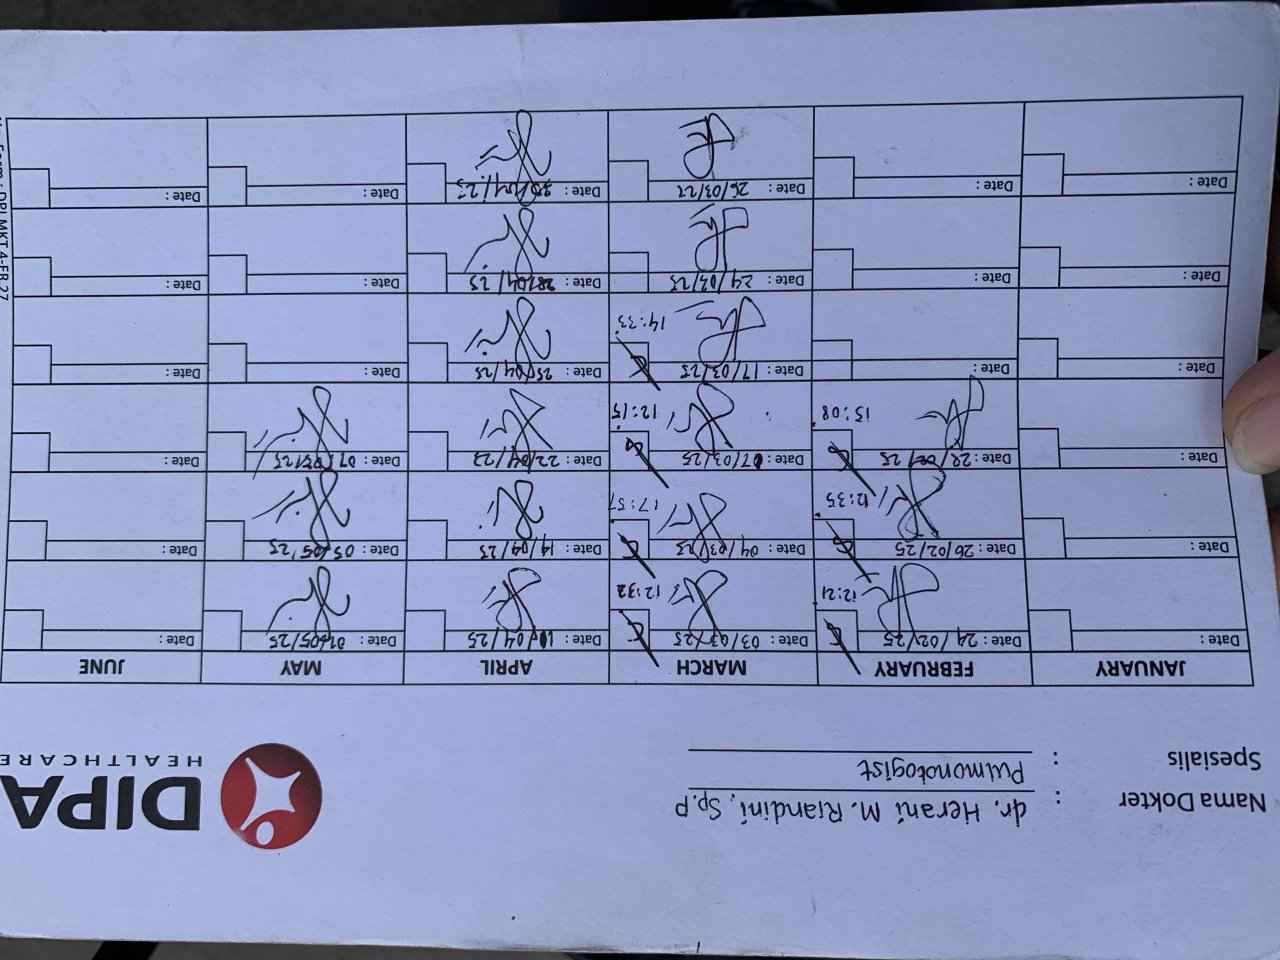 Nama Dokter : dr. Herani M. Riandini, Sp.P
Spesialis : Pulmonologist
DIPA
HEALTHCARE
JANUARY FEBRUARY MARCH APRIL MAY JUNE
Date : Date : 24/02/25 Date : 03/03/25 Date : 10/04/25 Date : 02/05/25 Date :
12:21 12:32
Date : Date : 26/02/25 Date : 04/03/25 Date : 14/04/25 Date : 05/05/25 Date :
12:35 17:57
Date : Date : 28/02/25 Date : 07/03/25 Date : 22/04/25 Date : 07/05/25 Date :
15:08 12:15
Date : Date : Date : 17/03/25 Date : 25/04/25 Date : Date :
14:33
Date : Date : Date : 24/03/25 Date : 28/04/25 Date : Date :
Date : Date : Date : 26/03/25 Date : Date : Date :
No. Form : DPI.MKT.4-FR.27